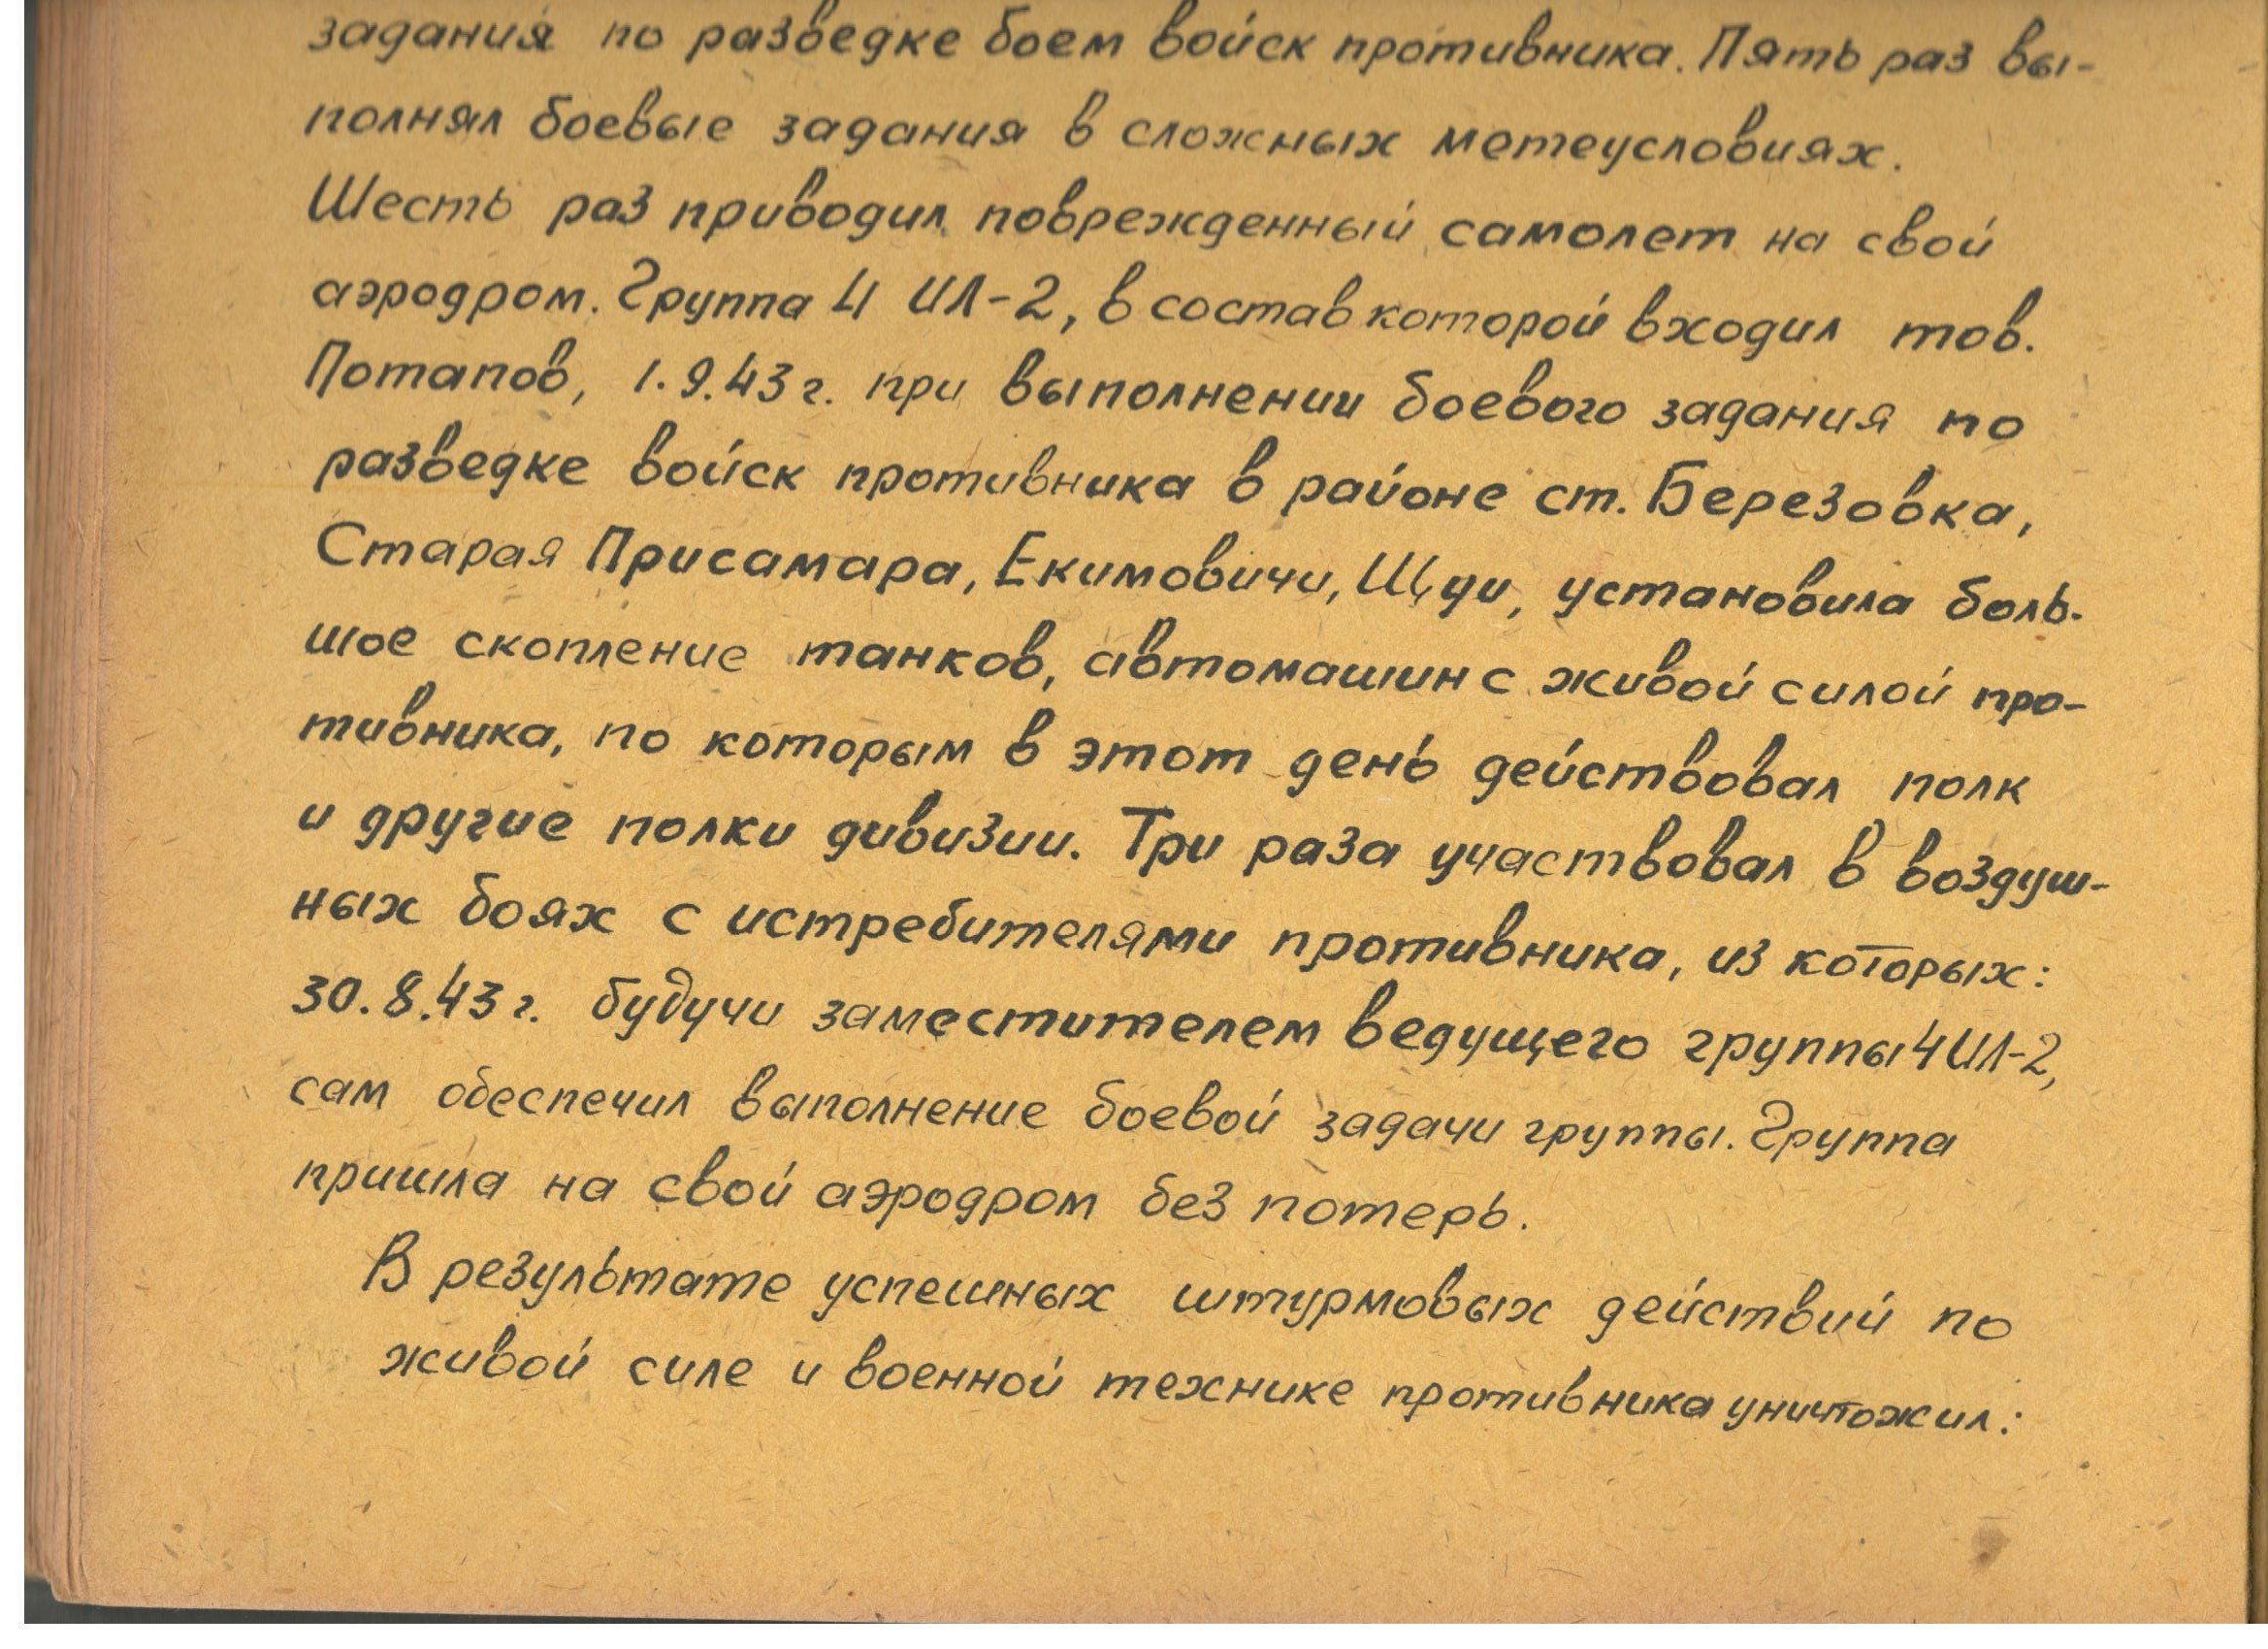 задания по разведке боем войск противника. Пять раз вы-
полнял боевые задания в сложных метеусловиях.
Шесть раз приводил поврежденный самолет на свой
аэродром. Группа 4 ИЛ-2, в состав которой входил тов.
Потапов, 1.9.43 г. при выполнении боевого задания по
разведке войск противника в районе ст. Березовка,
Старая Присамара, Екимовичи, установила боль-
шое скопление танков, автомашин с живой силой про-
тивника, по которым в этот день действовал полк
и другие полки дивизии. Три раза участвовал в воздуш-
ных боях с истребителями противника, из которых:
30.8.43 г. будучи заместителем ведущего группы 4 ИЛ-2,
сам обеспечил выполнение боевой задачи группы. Группа
пришла на свой аэродром без потерь.
В результате успешных штурмовых действий по
живой силе и военной технике противника уничтожил: